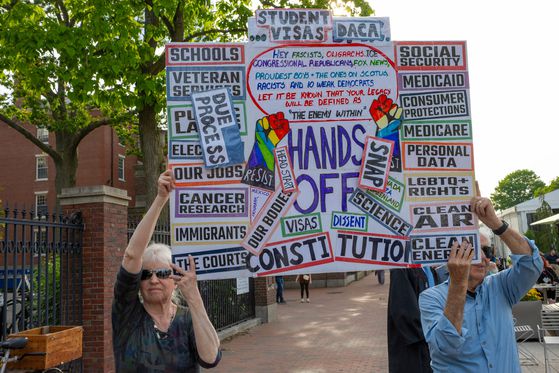 STUDENT DACA
VISAS
HEY FASCISTS, OLIGARCHS, ICE
CONGRESSIONAL REPUBLICANS, FOX NEWS
PROUDEST BOYS + THE ONES ON SCOTUS,
RACISTS AND 10 WEAK DEMOCRATS
LET IT BE KNOWN THAT YOUR LEGACY
WILL BE DEFINED AS
"THE ENEMY WITHIN"
SCHOOLS
VETERAN
SERVICES
DUE
PROCESS
OUR JOBS
CANCER
RESEARCH
IMMIGRANTS
THE COURTS
HANDS
OFF
RESIST
HEAD START
OUR BODIES
SNAP
SCIENCE
VISAS
DISSENT
CONSTITUTION
SOCIAL
SECURITY
MEDICAID
CONSUMER
PROTECTIONS
MEDICARE
PERSONAL
DATA
LGBTQ+
RIGHTS
CLEAN
AIR
CLEAN
ENERGY